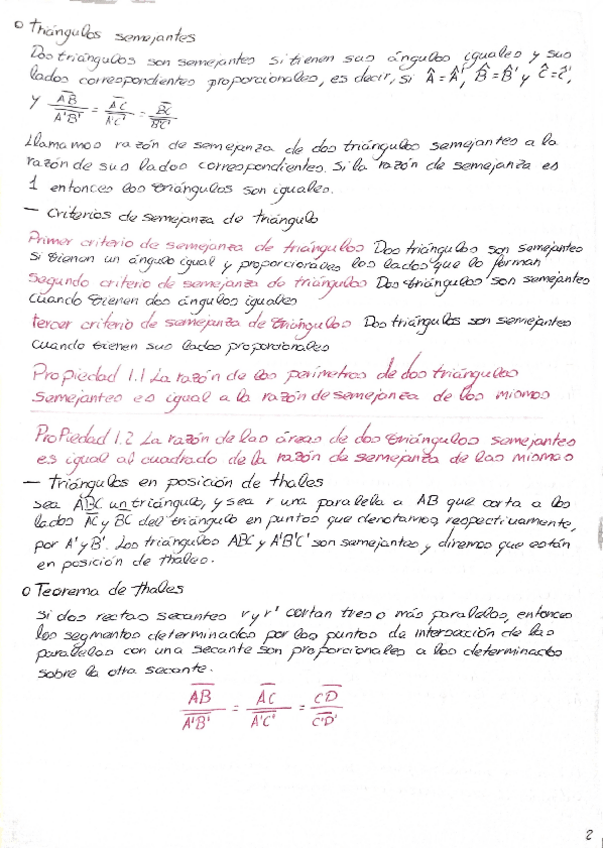 o Triángulos semejantes
Dos triángulos son semejantes si tienen sus ángulos iguales y sus
lados correspondientes proporcionales, es decir, si Â = Â', B̂ = B̂' y Ĉ = Ĉ',
y AB/A'B' = AC/A'C' = BC/B'C'
Llamamos razón de semejanza de dos triángulos semejantes a la
razón de sus lados correspondientes. Si la razón de semejanza es
1 entonces los triángulos son iguales.
— Criterios de semejanza de triángulo
Primer criterio de semejanza de triángulos Dos triángulos son semejantes
si tienen un ángulo igual y proporcionales los lados que lo forman
Segundo criterio de semejanza de triángulos Dos triángulos son semejantes
cuando tienen dos ángulos iguales
tercer criterio de semejanza de triángulos Dos triángulos son semejantes
cuando tienen sus lados proporcionales
Propiedad 1.1 La razón de los perímetros de dos triángulos
semejantes es igual a la razón de semejanza de los mismos
Propiedad 1.2 La razón de las áreas de dos triángulos semejantes
es igual al cuadrado de la razón de semejanza de las mismas
— Triángulos en posición de thales
sea ABC un triángulo, y sea r una paralela a AB que corta a los
lados AC y BC del triángulo en puntos que denotamos, respectivamente,
por A' y B'. Los triángulos ABC y A'B'C' son semejantes y diremos que están
en posición de thales.
o Teorema de thales
Si dos rectas secantes r y r' cortan tres o más paralelas, entonces
los segmentos determinados por los puntos de intersección de las
paralelas con una secante son proporcionales a los determinados
sobre la otra secante.
AB/A'B' = AC/A'C' = CD/C'D'
2